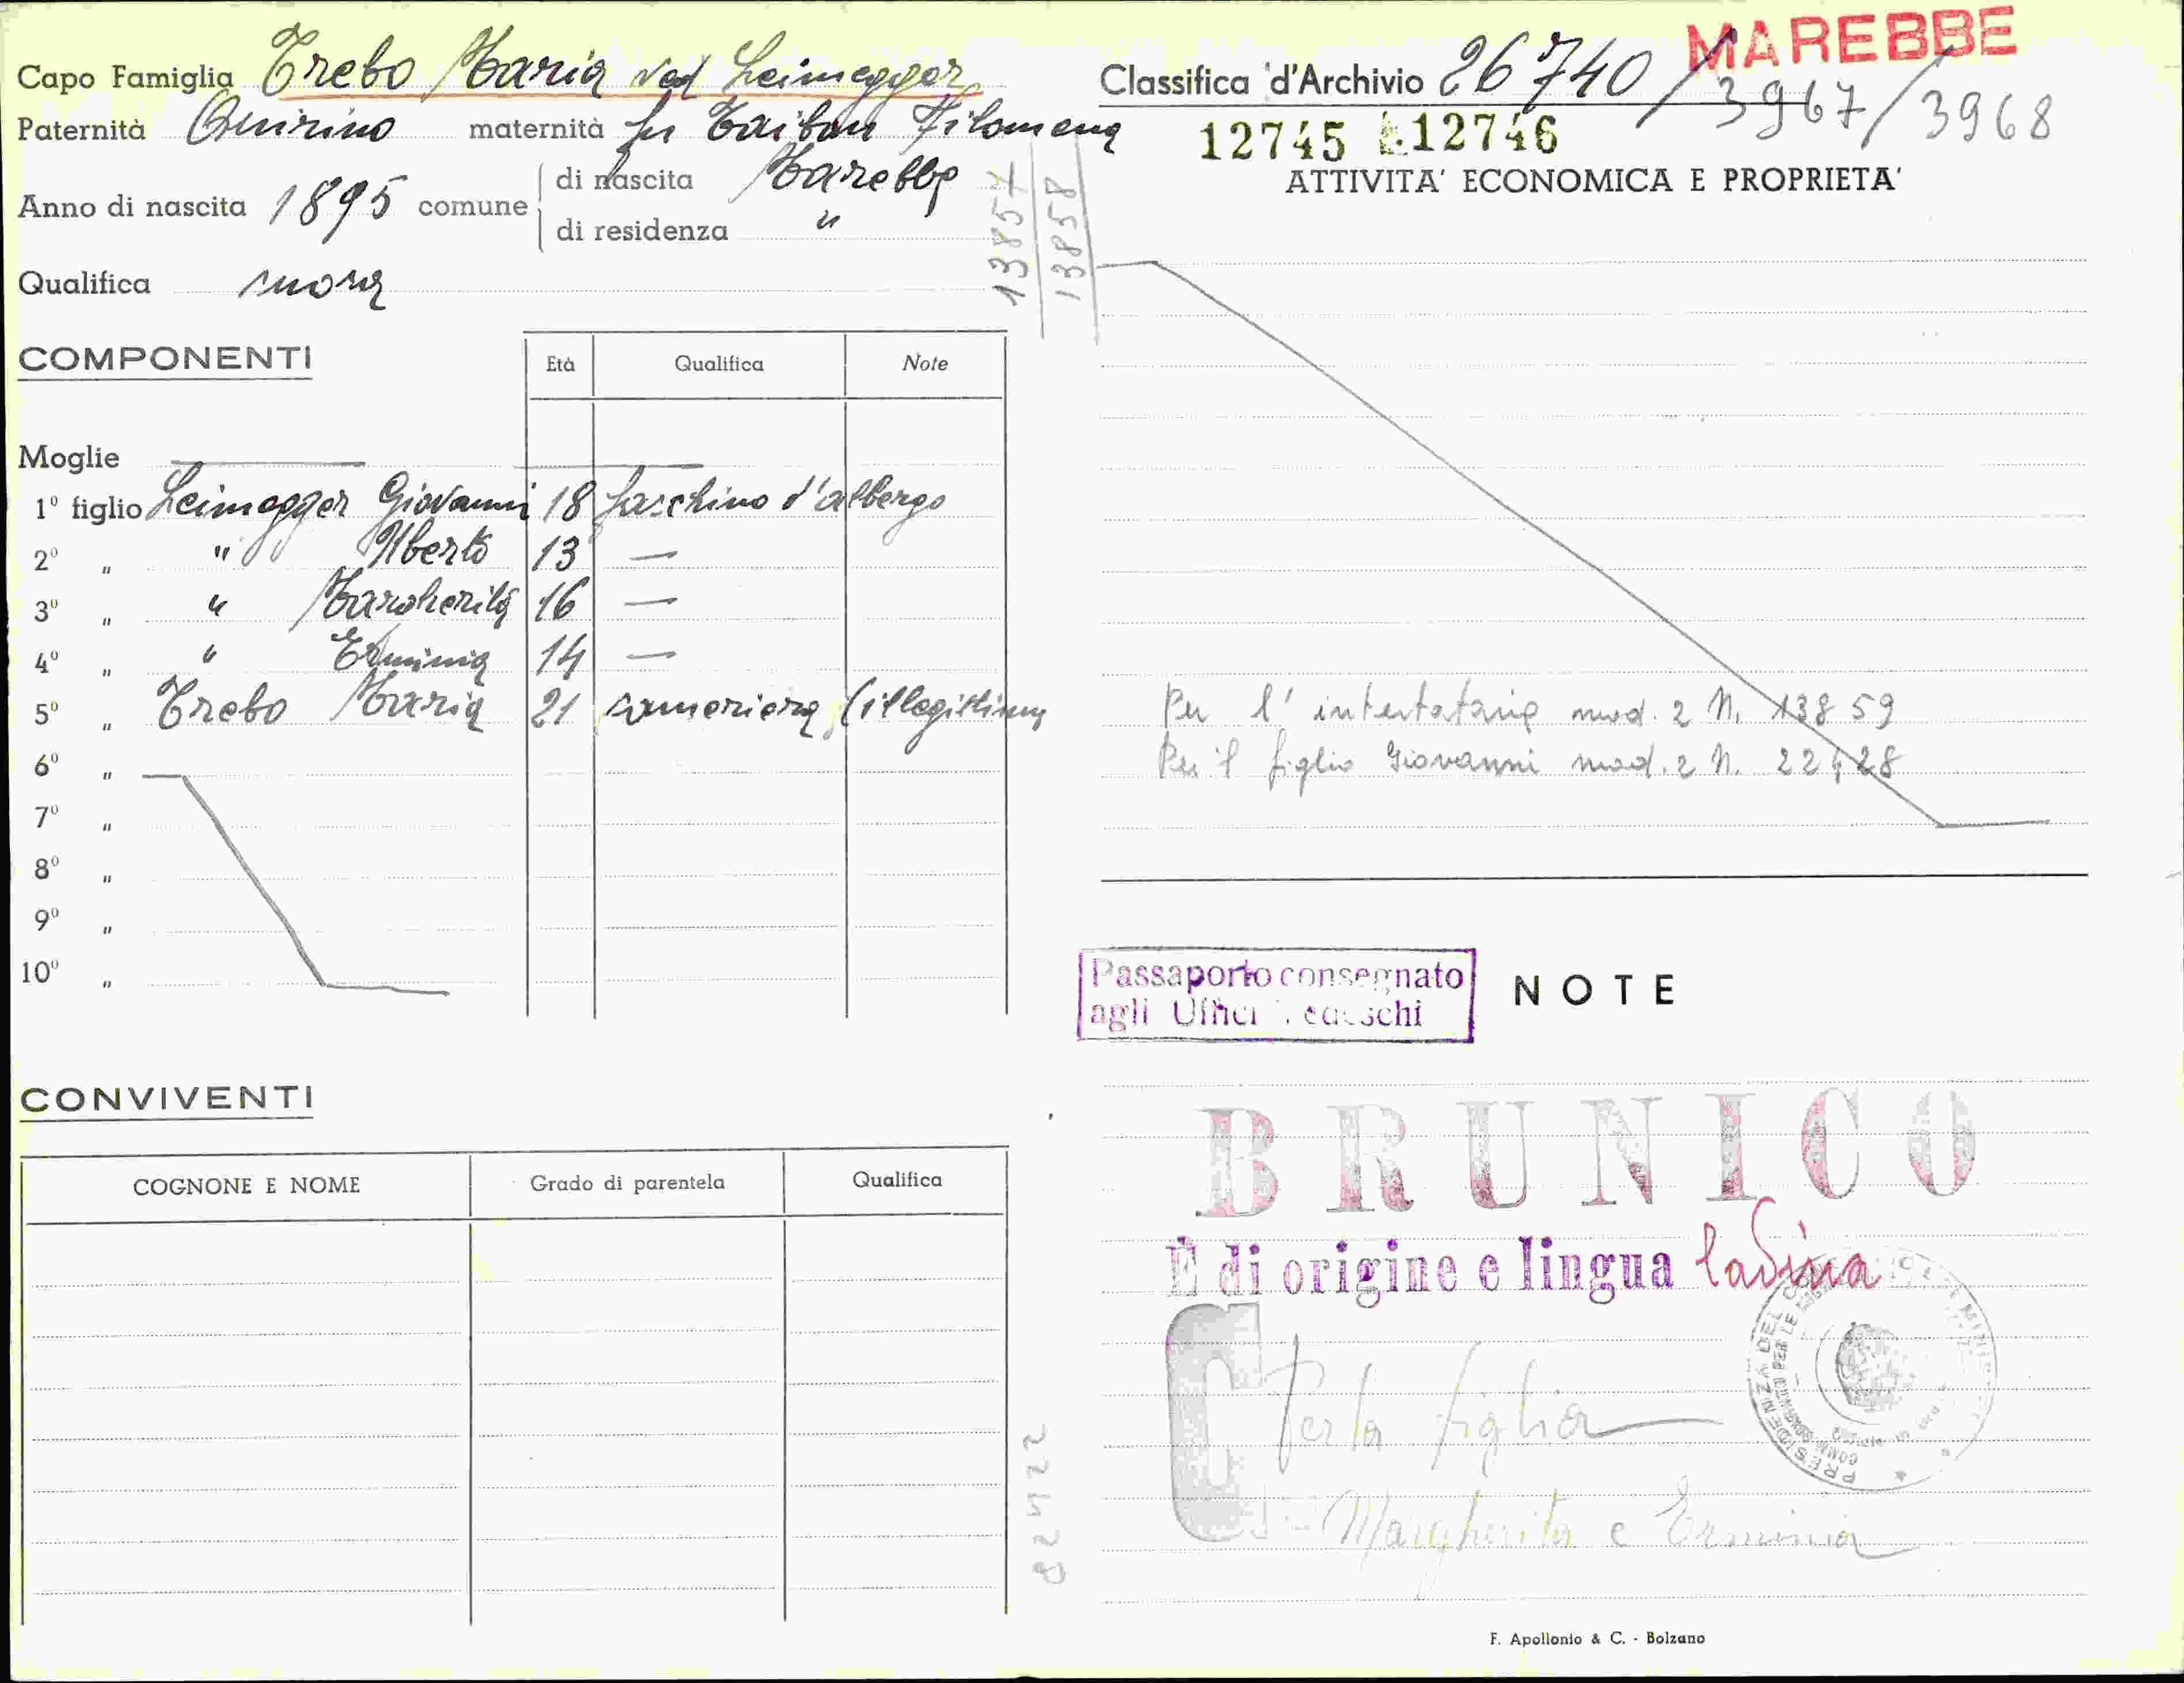 Capo Famiglia Trebo Maria ved Leimegger
Paternità Quirino maternità fu Taibon Filomena
Anno di nascita 1895 comune di nascita Marebbe
di residenza "
Qualifica
13857
13858
COMPONENTI
Età Qualifica Note
Moglie
1° figlio Leimegger Giovanni 18 facchino d'albergo
2° " " Alberto 13 —
3° " " Margherita 16 —
4° " " Erminia 14 —
5° " Trebo Maria 21 cameriera (illegittima
6° "
7° "
8° "
9° "
10° "
CONVIVENTI
COGNONE E NOME Grado di parentela Qualifica
MAREBBE
Classifica d'Archivio 26740/3967/3968
12745 12746
ATTIVITA' ECONOMICA E PROPRIETA'
Per l'intestataria mod. 2 N. 13859
Per il figlio Giovanni mod. 2 N. 22428
Passaporto consegnato
agli Uffici Tedeschi
NOTE
BRUNICO
È di origine e lingua ladina
C Per la figlia
Margherita e Erminia
PRESIDENZA DEL
F. Apollonio & C. - Bolzano